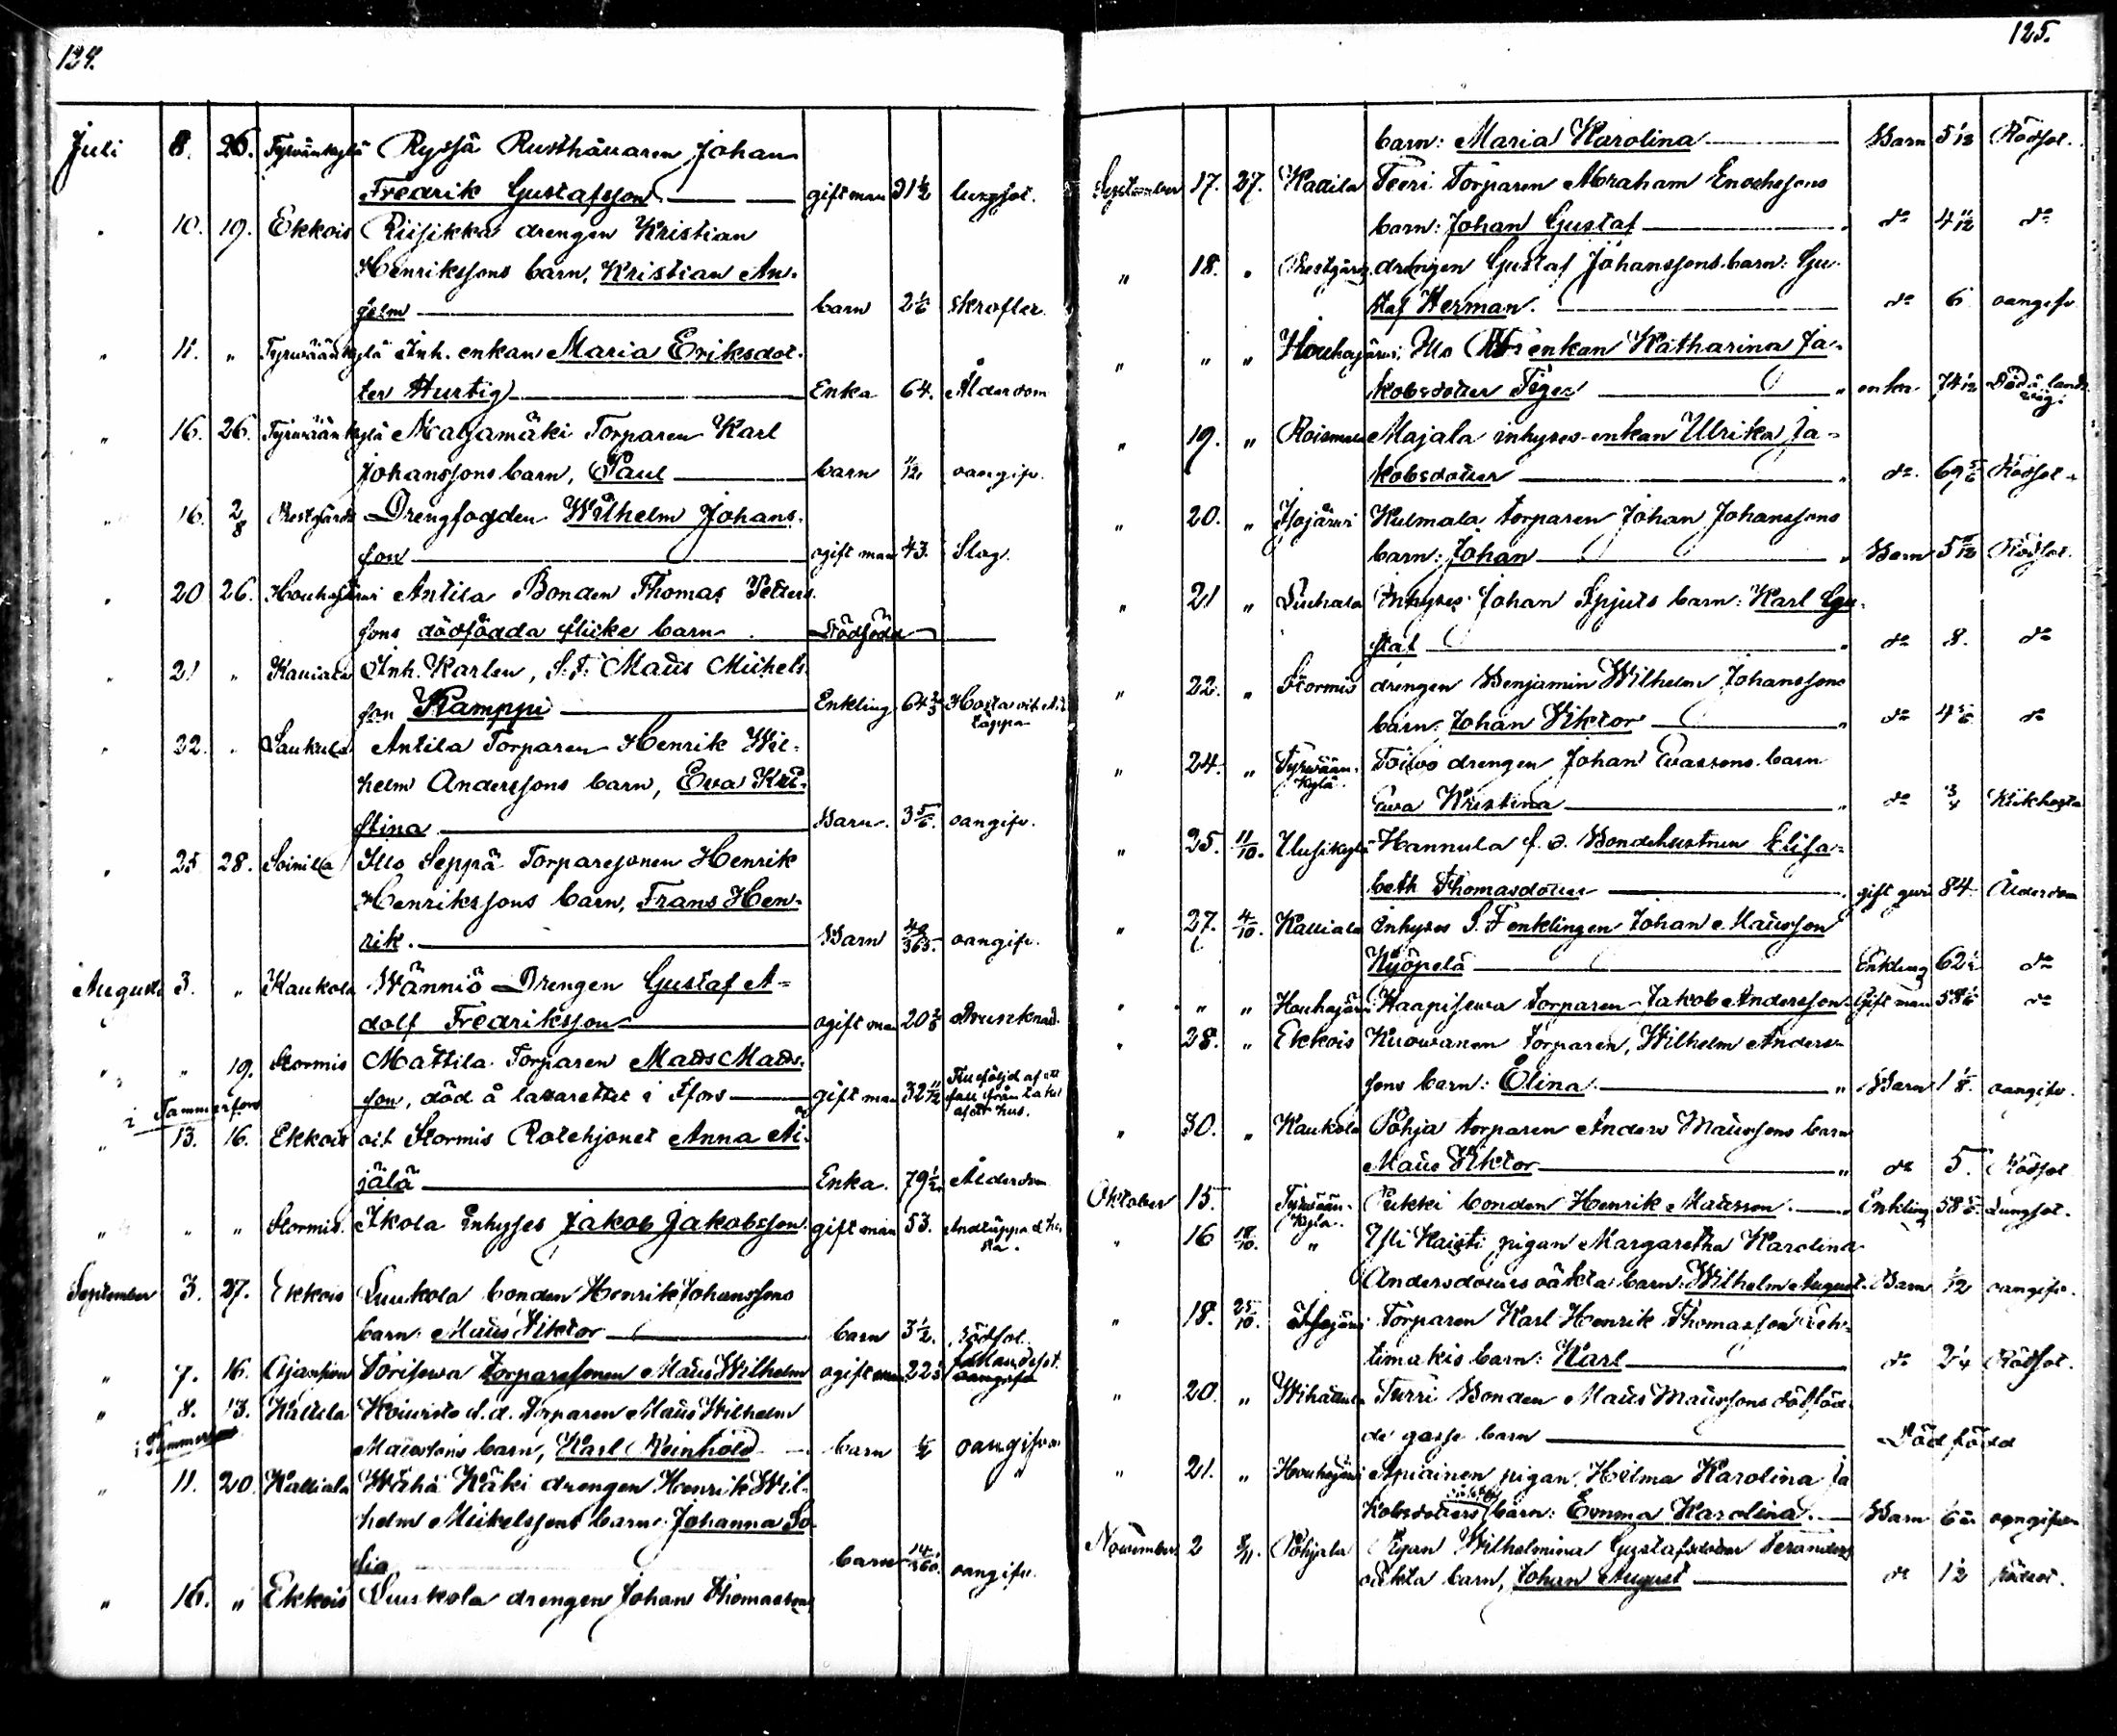 124.
Juli 8. 26. Tyrvänkylä Ryssä Rusthållaren Johan
Fredrik Gustafsson gift man 31½ lungsot.
" 10. 19. Ekkois Riisikka drengen Kristian
Henrikssons barn, Kristian An-
selm barn 2 1/6 Skrofler.
" 11. " Tyrwäänkylä Inh. enkan Maria Eriksdot-
ter Hurtig Enka 64. Ålderdom
" 16. 26. Tyrwäänkylä Torparen Karl
Johanssons barn, Paul barn oangifv.
" 16. 2/8 Prestgårds Drengfogden Wilhelm Johans-
son ogift man 43. Slag.
" 20 26. Houhajärvi Antila Bonden Thomas Petters-
sons dödfödda flicke barn Dödfödd
" 21 " Kauiala Inh. Karlen, S. F. Matts Michels-
son Kamppi Enkling 64 Hosta och And-
täppa
" 22. " Laukula Antila Torparen Henrik Wil-
helm Anderssons barn, Eva Kri-
stina Barn. 3 5/6. oangifv.
" 25 28. Soinila Illo Seppä Torparesonen Henrik
Henrikssons barn, Frans Hen-
rik. Barn 365. oangifv.
Augusti 3. " Kaukola Wänniö Drengen Gustaf A-
dolf Fredriksson ogift man 20 Drunknad.
" " 19. Stormis Mattila Torparen Matts Matts-
son, död å lasarettet i Tfors gift man 32 11/12 Till följd af ett
fall från taket
af ett hus.
i Tammerfors
" 13. 16. Ekkois och Stormis Rotehjonet Anna Äi-
jälä Enka. 79½. Ålderdom
" " " Stormis. Ikola Inhyses Jakob Jakobsson. gift man 53. Andtäppa
September 3. 27. Ekkois Luukola bonden Henrik Johanssons
barn: Matts Viktor barn 3½. rödsot.
" 7. 16. Torisewa Torparesonen Matts Wilhelm ogift man 22 oangifv
" 8. 13. Kallila Koivisto f. d. Torparen Matts Wilhelm
i Tammerfors Mattssons barn, Karl Reinhold barn ½ oangifven
" 11. 20. Kalliala Wähä Käki drengen Henrik Wil-
helm Mickelssons barn: Johanna So-
fia barn oangifv.
" 16. " Ekkois Luukola drengen Johan Thomassons
125.
barn: Maria Karolina Barn 5 Rödsot.
September 17. 27. Kallila Teeri Torparen Abraham Enochssons
barn: Johan Gustaf do 4 11/12 do
" 18. " Prestgård, drengen Gustaf Johanssons barn: Gu-
staf Herman. do 6 oangifv
" " " Houhajärvi, Illo enkan Katharina Ja-
kobsdotter Tiger " enka. 74 Död å lands
väg.
" 19. " Roismala Majala inhyses-enkan Ulrika Ja-
kobsdotter " do. 69 5/6 Rödsot
" 20. " Isojärvi Kulmala torparen Johan Johanssons
barn: Johan " Barn 5 Rödsot.
" 21 " Liuhala Inhyses Johan Spjuts barn: Karl Gu-
staf " do 8. do
" 22. " Stormis drengen Benjamin Wilhelm Johanssons
barn: Johan Viktor " do 4 5/6 do
" 24. " Tyrwään-
kylä. Toivo drengen Johan Evassons barn
Ewa Kristina " do ¾ Kikhosta
" 25. 11/10. Uusikylä Hannula f. d. Bondehustrun Elisa-
beth Thomasdotter gift qvi 84 Ålderdom
" 27. 4/10. Kalliala Inhyses S. F enklingen Johan Mattsson
Knöpelä Enkling 62½ do
" " " Houhajärvi Haapisewa torparen Jakob Andersson Gift man 58 do
" 28. " Ekkois Kuowanen torparen, Wilhelm Anders-
sons barn: Elina " Barn 1 1/8. oangifv.
" 30. " Kaukola Pohja torparen Anders Mattssons barn
Matts Viktor " do 5. Rödsot
Oktober 15. Tyrwään-
kylä. Pukki bonden Henrik Mattsson. Enkling 58 Lungsot.
" 16 18/10. " Yli Kaisti pigan Margaretha Karolina
Andersdotters oäkta barn: Wilhelm August. Barn 1/12 oangifv.
" 18. 25/10. Isojärvi Torparen Karl Henrik Thomasson Leh-
timäkis barn: Karl do 2¼ Rödsot.
" 20. " Turri Bonden Matts Mattssons dödföd-
de gosse barn Dödfödd
" 21. " Houhajärvi Apiainen pigan Hilma Karolina Ja
kobsdotters oäkta barn: Emma Karolina. Barn oangifven
November 2 Pohjala Pigan Wilhelmina Gustafsdotter Seranders
oäkta barn, Johan August do